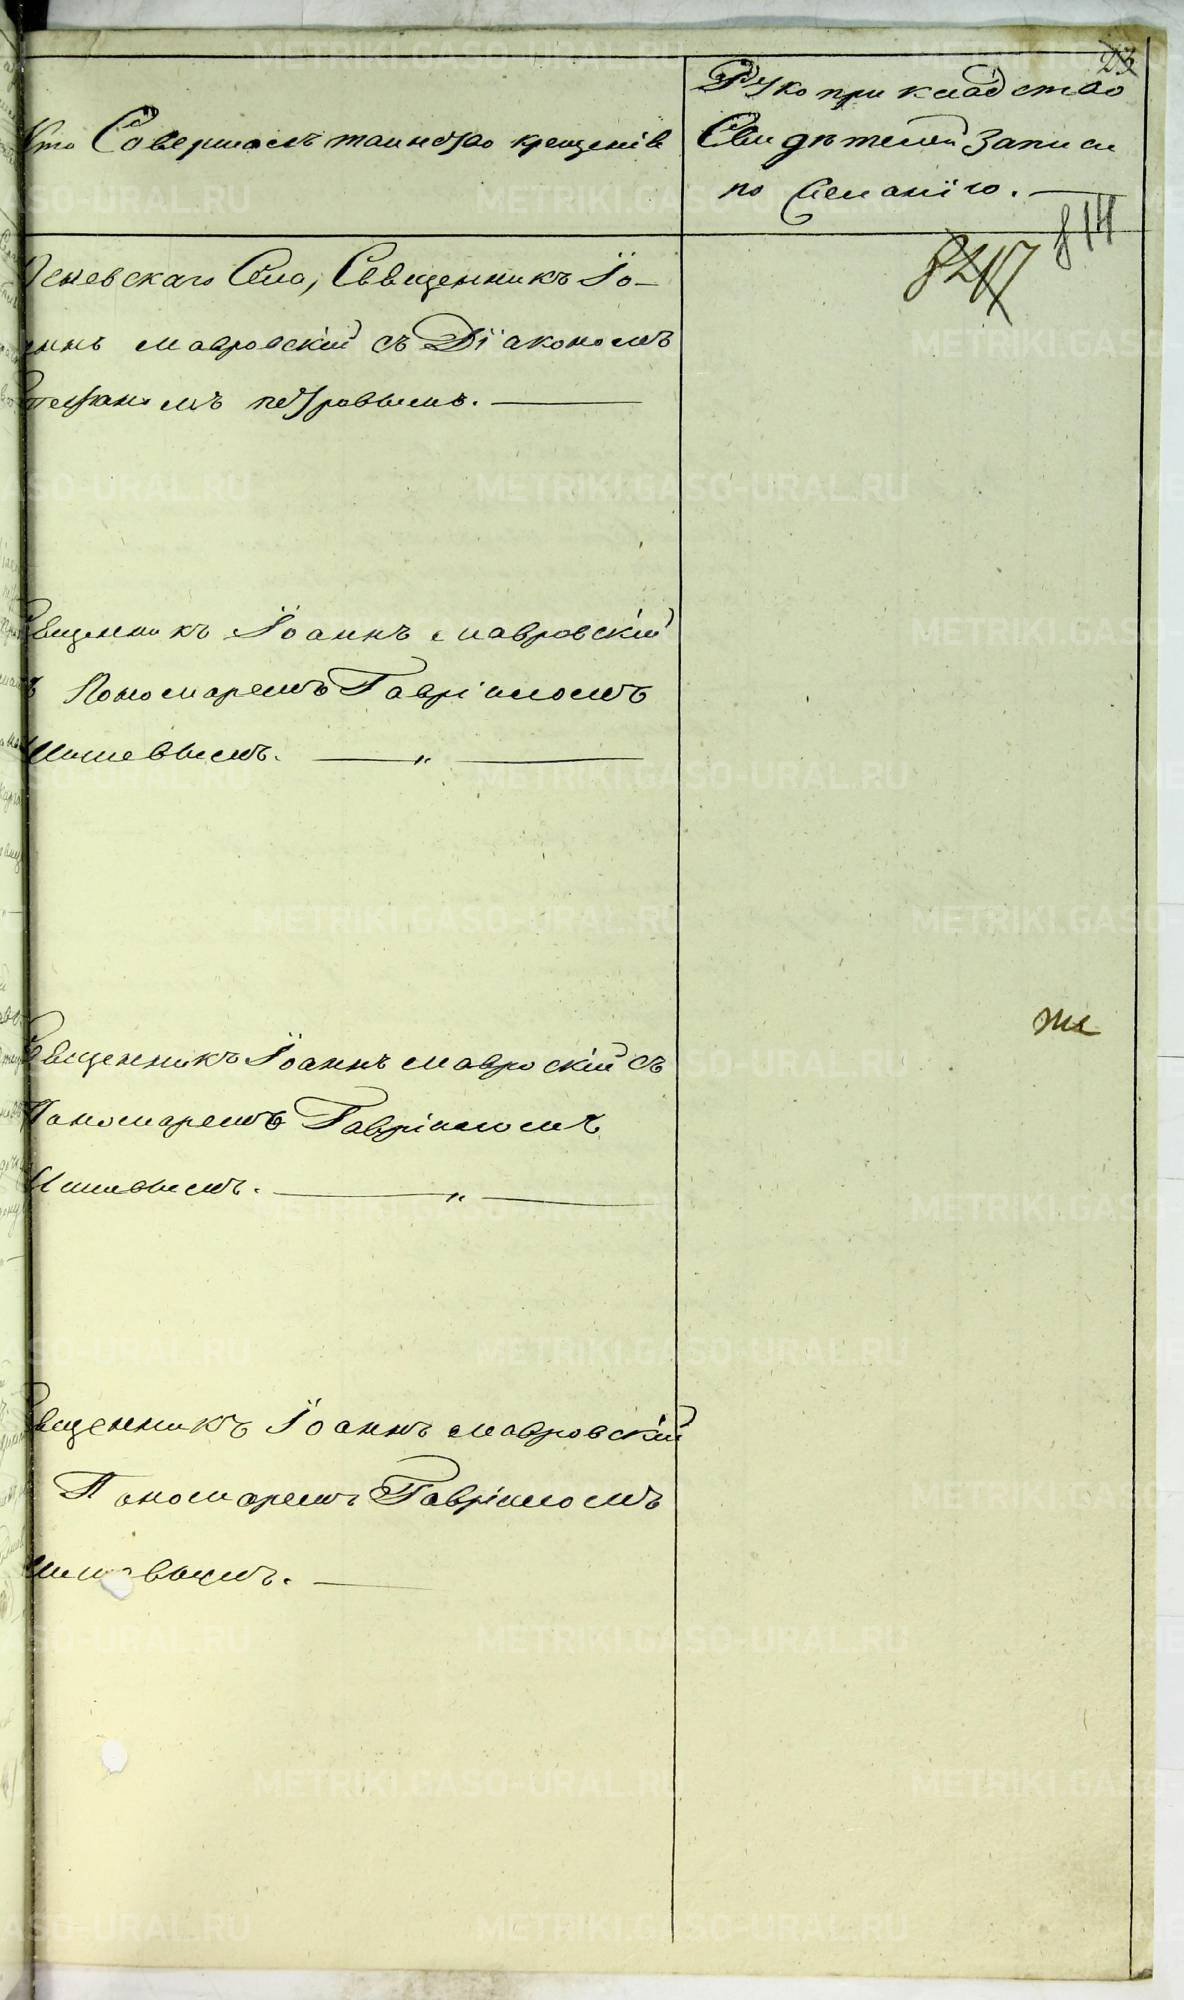 23
Кто Совершалъ таинство крещенія
Рукоприкладство
Свидѣтелей записи
по желанію.
814
Сѣла, Священникъ Іо-
аннъ Мавровскій съ Діакономъ
Стефаномъ Петровымъ.
Священникъ Іоаннъ Мавровскій
съ Пономаремъ Гавріиломъ
Священникъ Іоаннъ Мавроскій съ
Пономаремъ Гавріиломъ
Священникъ Іоаннъ Мавровскій
Пономаремъ Гавріиломъ
METRIKI.GASO-URAL.RU